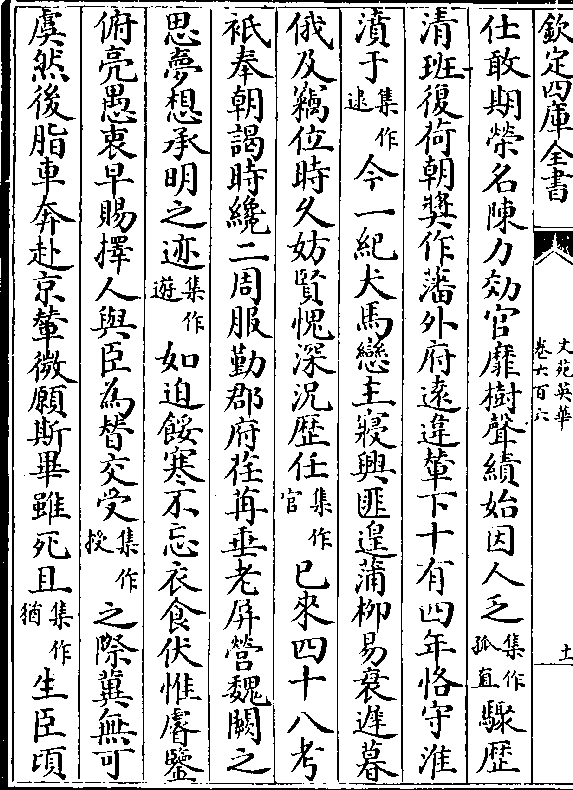 欽定四庫全書
文苑英華
卷六百六
土
仕敢期榮名陳力効官靡樹聲績始因人乏集作孤直驟歷
清班復荷朝奬作藩外府遠違輦下十有四年恪守淮
濆于集作逮今一紀犬馬戀主寢興匪遑蒲柳易衰遲暮
俄及竊位時久妨賢愧深況歴任集作官已來四十八考
祇奉朝謁時纔二周服勤郡府荏苒垂老屏營魏闕之
思夢想承明之迹集作遊如迫餒寒不忘衣食伏惟睿鑒
俯亮愚衷早賜擇人與臣為替交受集作授之際冀無可
虞然後脂車奔赴京輦微願斯畢雖死且集作猶生臣頃